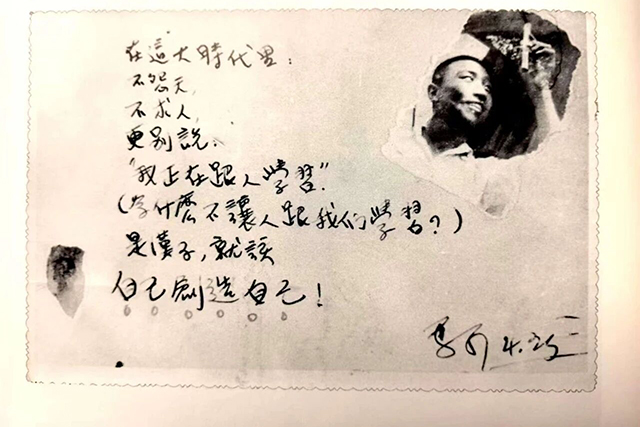 在這大時代里：
不怨天，
不求人，
更别説：
“我正在跟人學習”
(为什麽不讓人跟我们學習？)
是漢子，就該
自己創造自己！